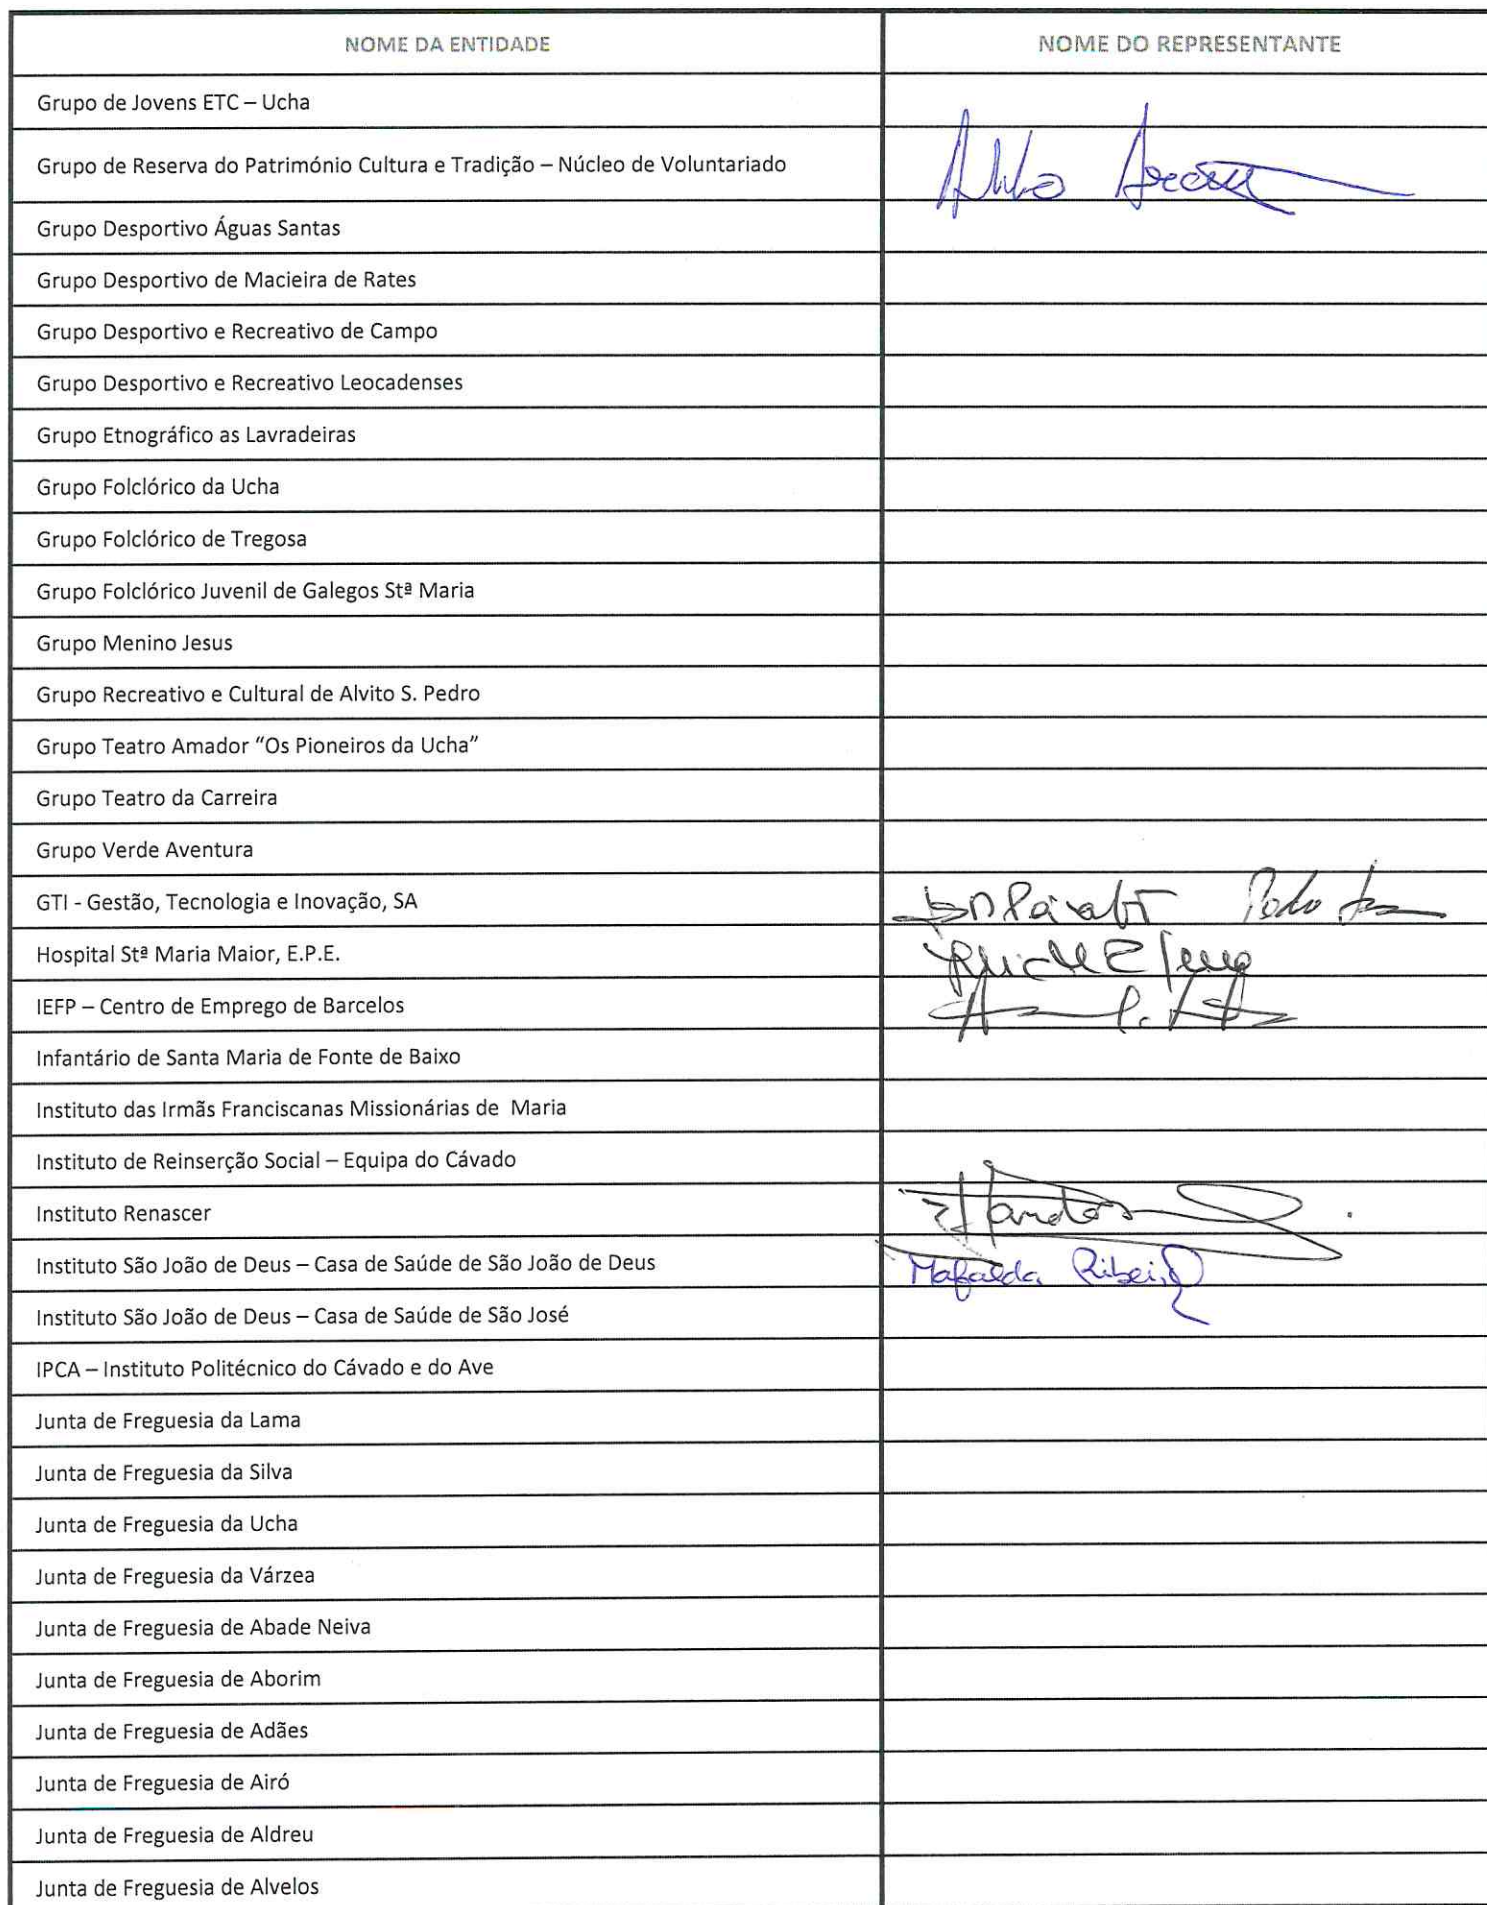 NOME DA ENTIDADE NOME DO REPRESENTANTE
Grupo de Jovens ETC – Ucha
Grupo de Reserva do Património Cultura e Tradição – Núcleo de Voluntariado
Grupo Desportivo Águas Santas
Grupo Desportivo de Macieira de Rates
Grupo Desportivo e Recreativo de Campo
Grupo Desportivo e Recreativo Leocadenses
Grupo Etnográfico as Lavradeiras
Grupo Folclórico da Ucha
Grupo Folclórico de Tregosa
Grupo Folclórico Juvenil de Galegos Stª Maria
Grupo Menino Jesus
Grupo Recreativo e Cultural de Alvito S. Pedro
Grupo Teatro Amador “Os Pioneiros da Ucha”
Grupo Teatro da Carreira
Grupo Verde Aventura
GTI - Gestão, Tecnologia e Inovação, SA
Hospital Stª Maria Maior, E.P.E.
IEFP – Centro de Emprego de Barcelos
Infantário de Santa Maria de Fonte de Baixo
Instituto das Irmãs Franciscanas Missionárias de Maria
Instituto de Reinserção Social – Equipa do Cávado
Instituto Renascer
Instituto São João de Deus – Casa de Saúde de São João de Deus Mafalda Ribeiro
Instituto São João de Deus – Casa de Saúde de São José
IPCA – Instituto Politécnico do Cávado e do Ave
Junta de Freguesia da Lama
Junta de Freguesia da Silva
Junta de Freguesia da Ucha
Junta de Freguesia da Várzea
Junta de Freguesia de Abade Neiva
Junta de Freguesia de Aborim
Junta de Freguesia de Adães
Junta de Freguesia de Airó
Junta de Freguesia de Aldreu
Junta de Freguesia de Alvelos